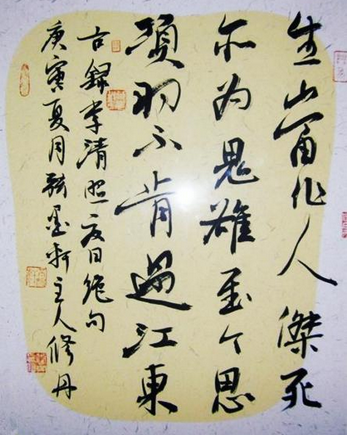 生當作人傑死
亦为鬼雄至今思
項羽不肯過江東
古錄李清照夏日绝句
庚寅夏月翰墨轩主人修丹